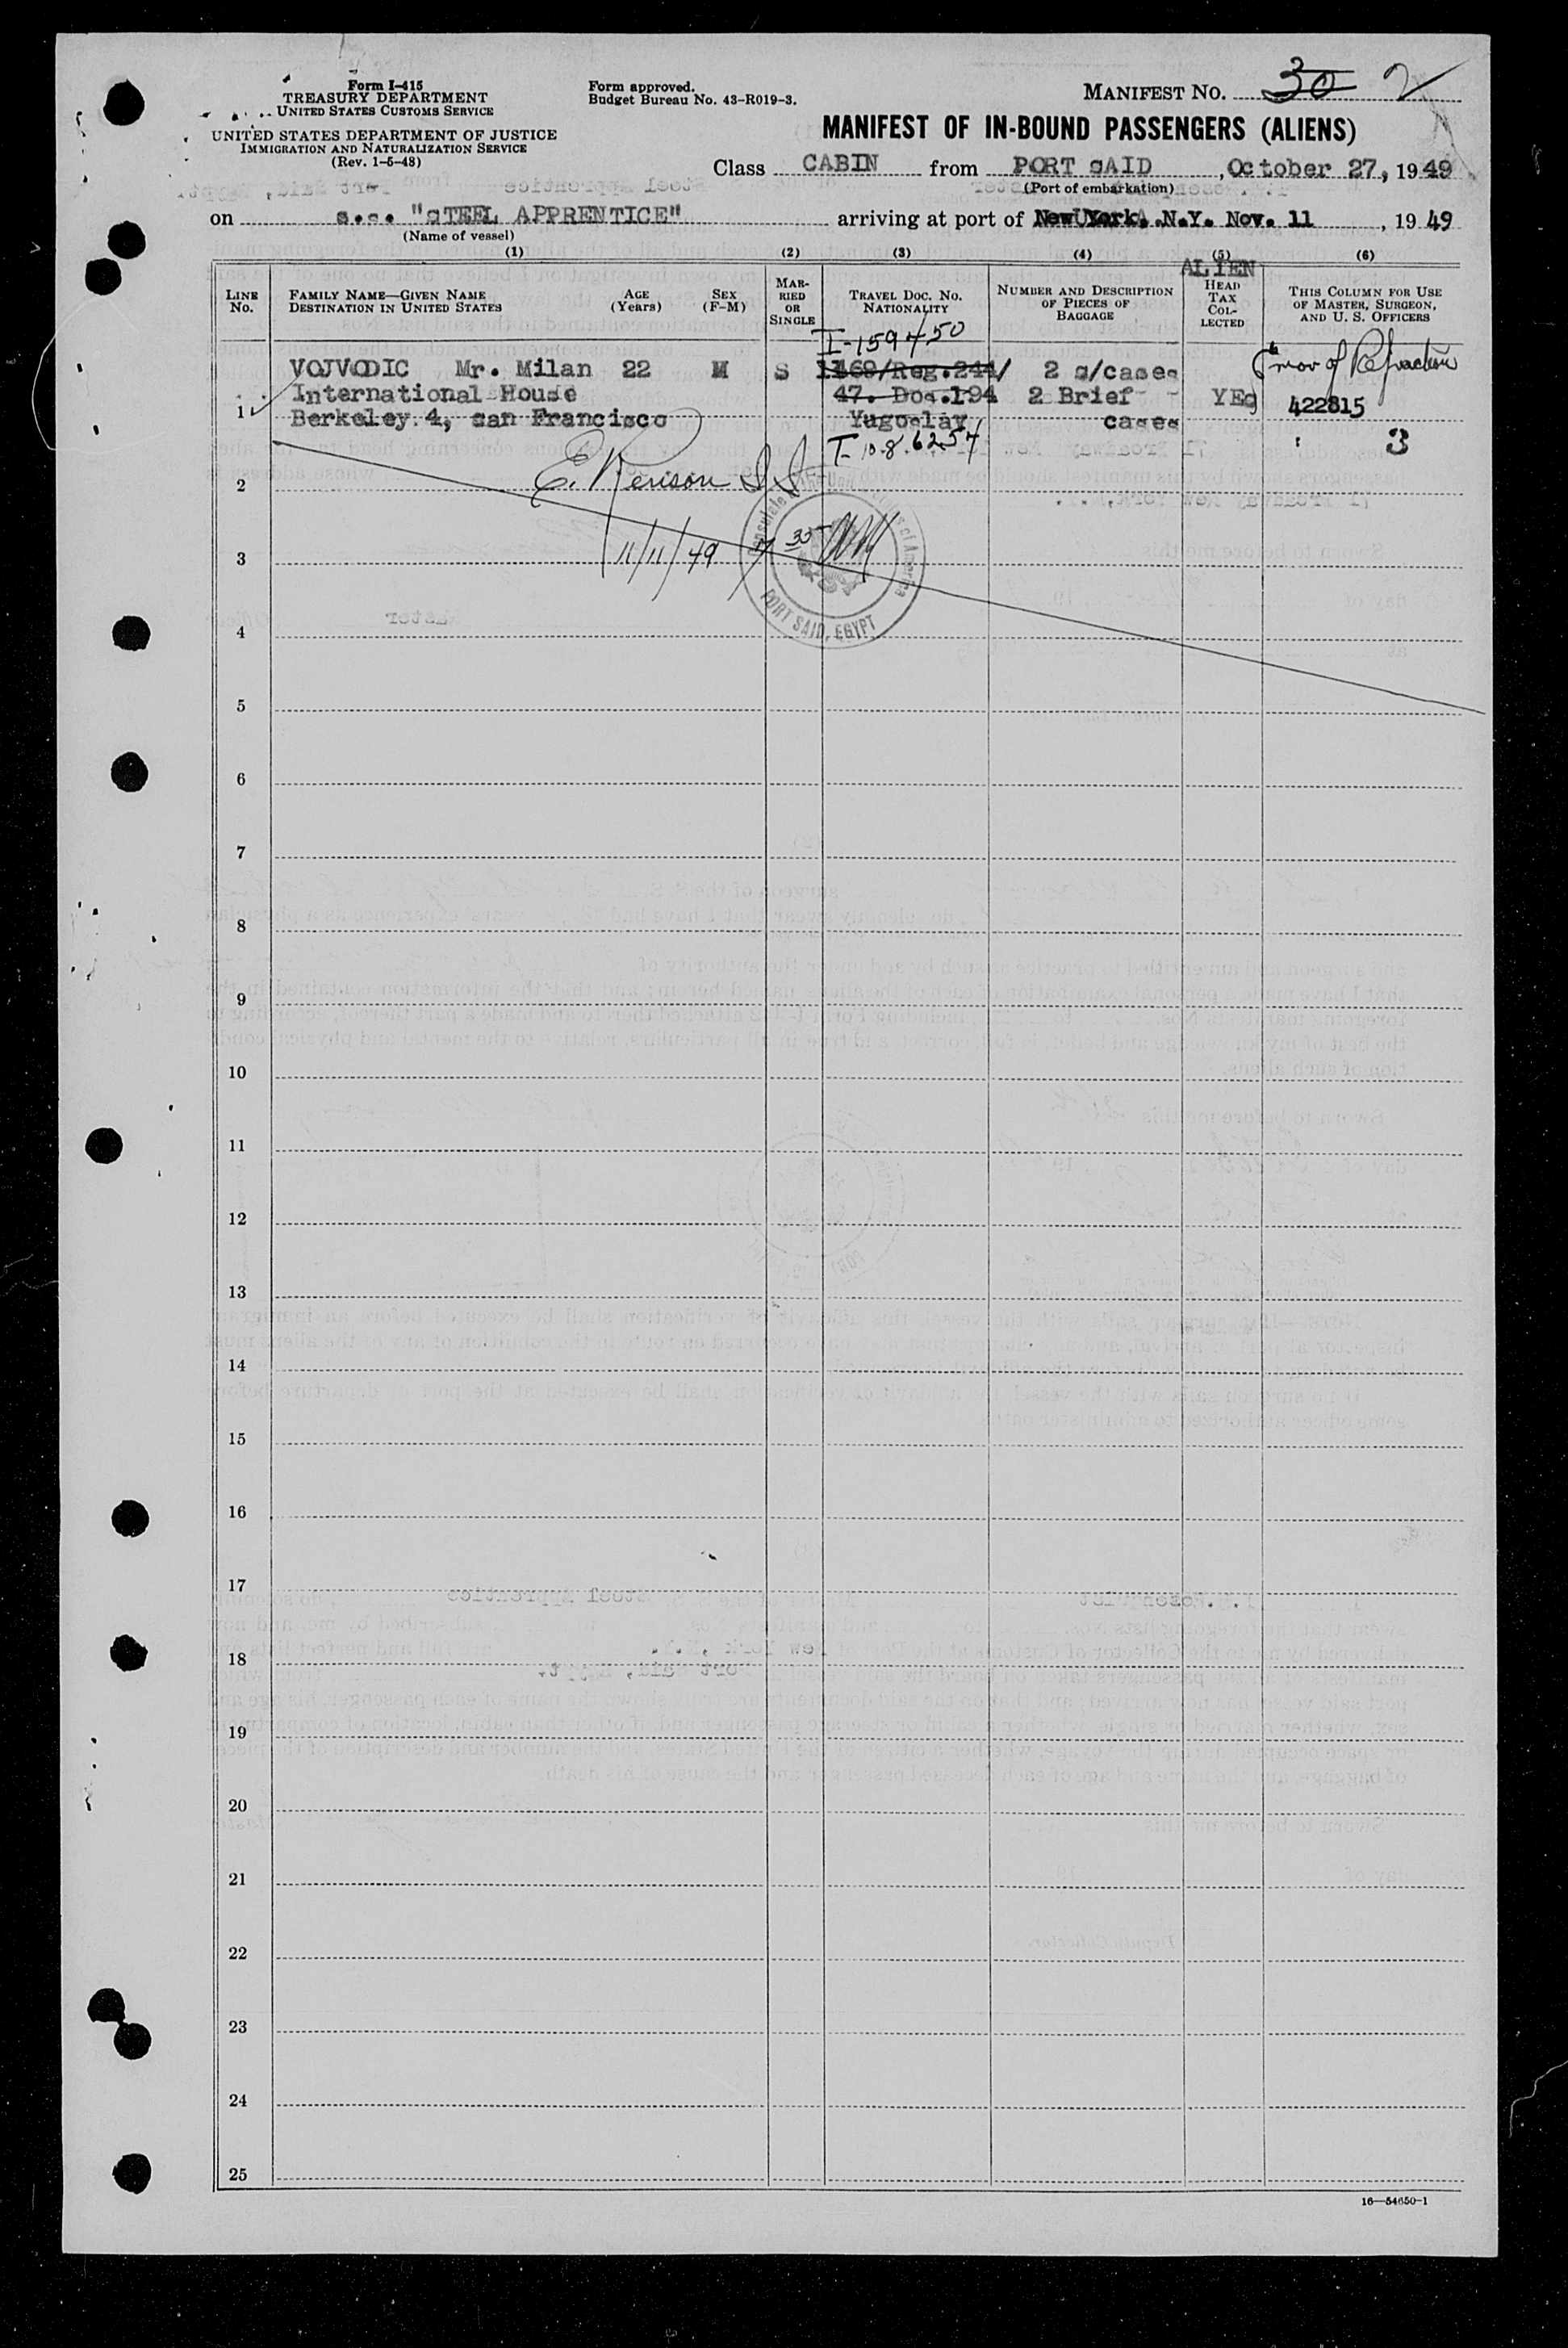 Form I-415
TREASURY DEPARTMENT
UNITED STATES CUSTOMS SERVICE
UNITED STATES DEPARTMENT OF JUSTICE
IMMIGRATION AND NATURALIZATION SERVICE
(Rev. 1-5-48)
Form approved.
Budget Bureau No. 43-R019-3.
MANIFEST NO. 30 2
MANIFEST OF IN-BOUND PASSENGERS (ALIENS)
Class CABIN from PORT SAID, October 27, 1949
(Port of embarkation)
on s.s. "STEEL APPRENTICE" arriving at port of New York, N.Y. Nov. 11, 1949
(Name of vessel)
(1) (2) (3) (4) (5) (6)
ALIEN
LINE No.
FAMILY NAME—GIVEN NAME
DESTINATION IN UNITED STATES
AGE (Years)
SEX (F-M)
MARRIED OR SINGLE
TRAVEL DOC. NO.
NATIONALITY
NUMBER AND DESCRIPTION OF PIECES OF BAGGAGE
HEAD TAX COLLECTED
THIS COLUMN FOR USE OF MASTER, SURGEON, AND U. S. OFFICERS
I-159450
VOJVODIC Mr. Milan 22 M S 1469/Reg.244/ 2 s/cases
International House 47. Doc.194 2 Brief- YES 422815
1 Berkeley 4, san Francisco Yugoslav cases
3
2
E. Kenison
3
11/11/49
PORT SAID, EGYPT
4
5
6
7
8
9
10
11
12
13
14
15
16
17
18
19
20
21
22
23
24
25
16—54650-1